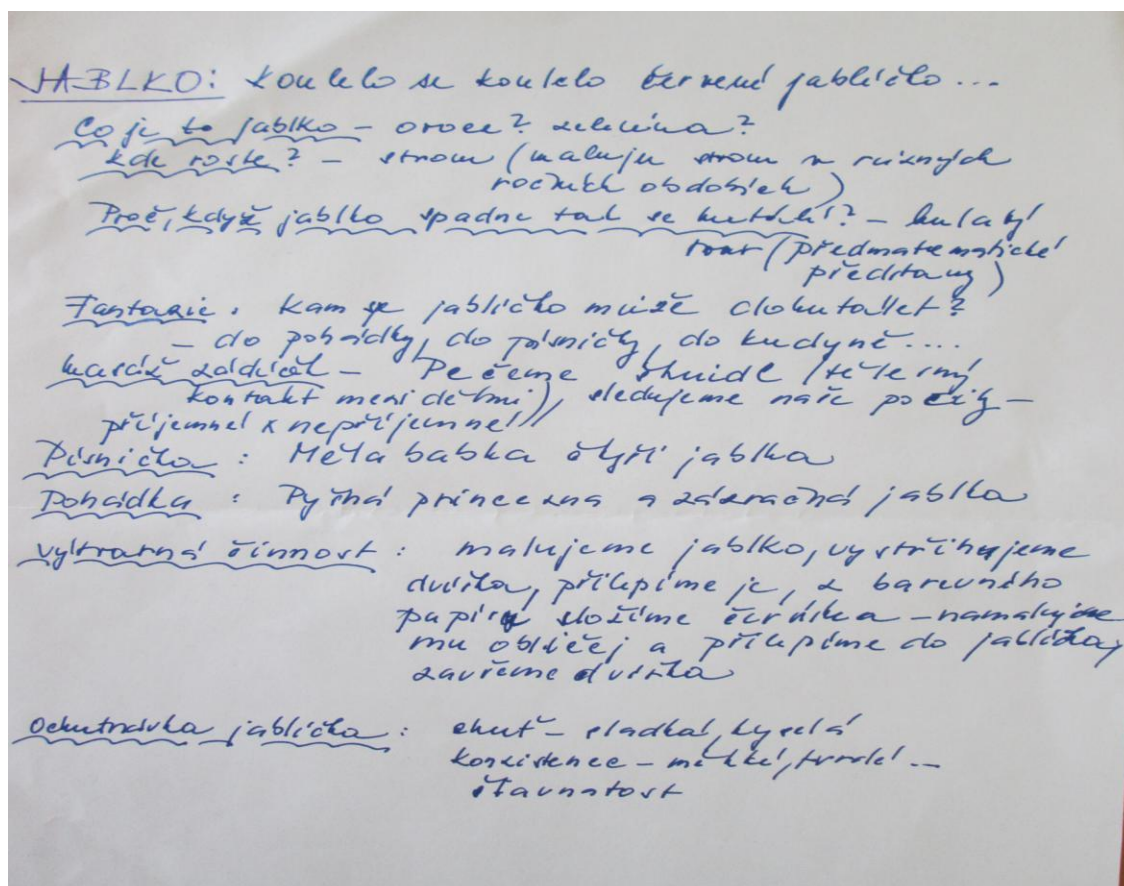 JABLKO: Koulelo se koulelo červené jablíčko...
Co je to jablko – ovoce? zelenina?
Kde roste? – strom (maluju strom v různých
ročních obdobích)
Proč, když jablko spadne tak se kutálí? – kulatý
tvar (předmatematické
představy)
Fantazie: Kam se jablíčko může dokutálet?
– do pohádky, do písničky, do kuchyně....
Masáž zádíček – Pečeme štrúdl (tělesný
kontakt mezi dětmi), sledujeme naše pocity –
příjemné x nepříjemné
Písnička: Měla babka čtyři jablka
Pohádka: Pyšná princezna a zázračná jablka
Výtvarná činnost: malujeme jablko, vystřihujeme
dvířka, přilepíme je, z barevného
papíru složíme červíka – namalujeme
mu obličej a přilepíme do jablíčka,
zavřeme dvířka
Ochutnávka jablíčka: chuť – sladká, kyselá
konzistence – měkké, tvrdé...
šťavnatost